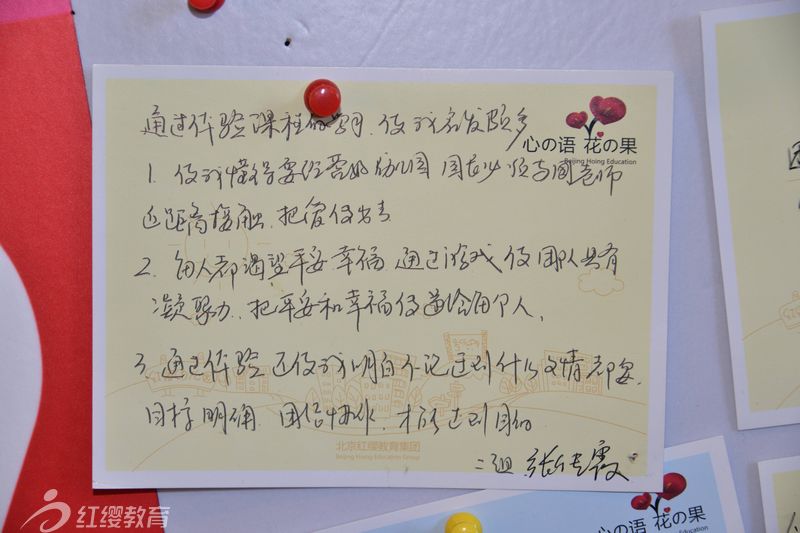 通过体验课程的学习、使我启发颇多
心の语 花の果
Beijing Hoing Education
1. 使我懂得要经营好幼儿园 园长必须与园老师
近距离接触、把爱传出去
2. 每人都渴望平安幸福 通过游戏 使团队具有
凝聚力、把平安和幸福传递给每个人、
3. 通过体验 还使我明白不论遇到什么事情都要
目标明确 团结协作、才能达到目的
北京红缨教育集团
Beijing Hoing Education Group
二组 张 霞
红缨教育
心の语 花の果